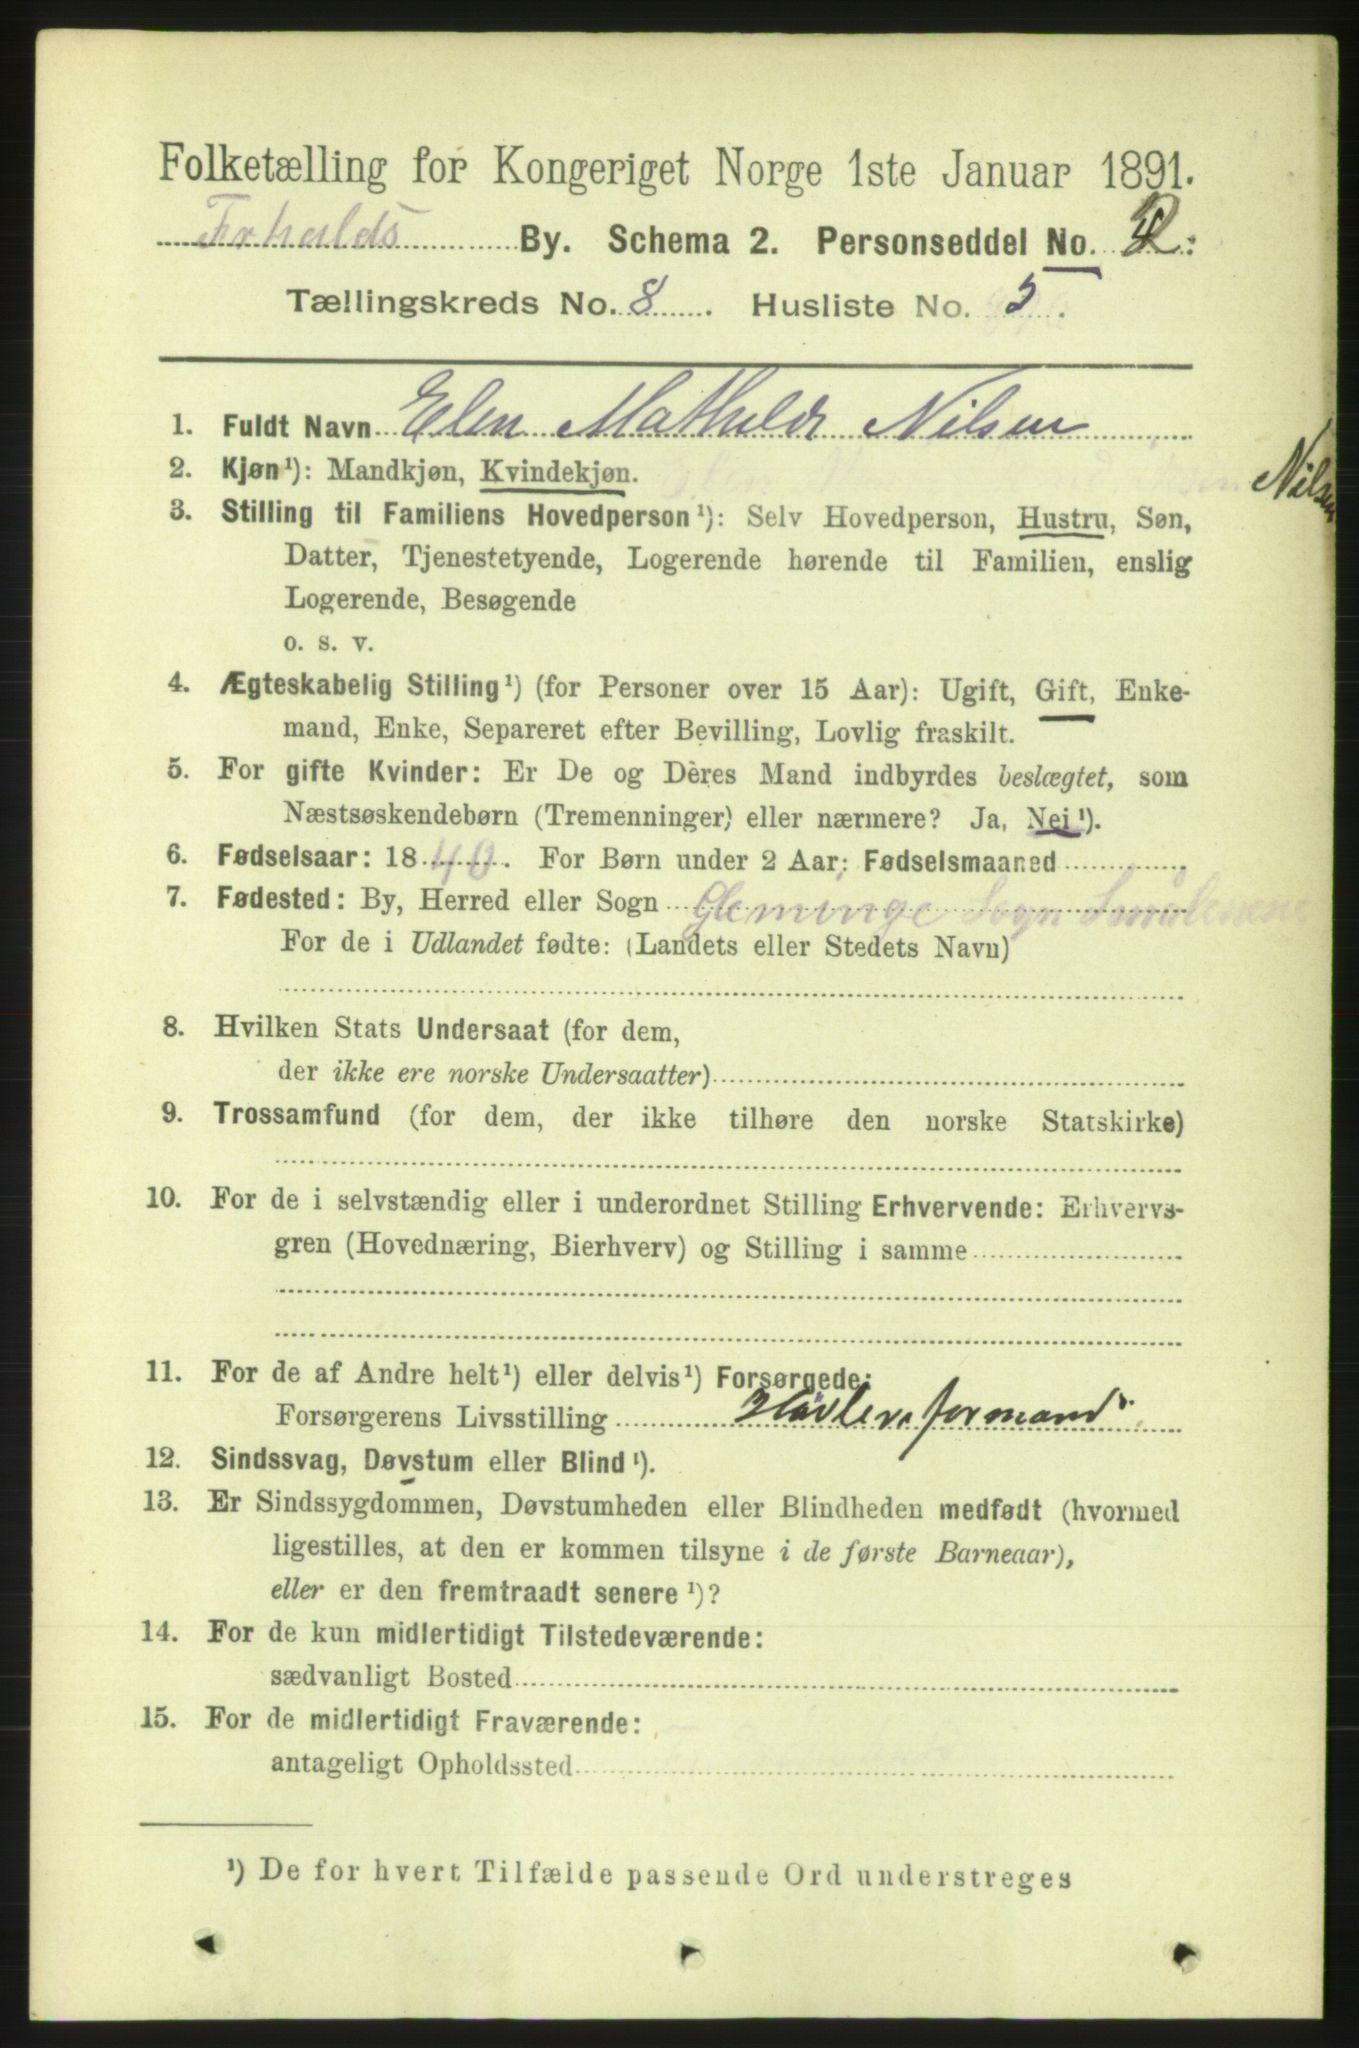 Folketælling for Kongeriget Norge 1ste Januar 1891.
Frhalds By. Schema 2. Personseddel No. 2:
Tællingskreds No. 8. Husliste No. 5.
1. Fuldt Navn Elen Mathilde Nilsen
2. Kjøn¹): Mandkjøn, Kvindekjøn.
Nilsen
3. Stilling til Familiens Hovedperson¹): Selv Hovedperson, Hustru, Søn,
Datter, Tjenestetyende, Logerende hørende til Familien, enslig
Logerende, Besøgende
o. s. v.
4. Ægteskabelig Stilling¹) (for Personer over 15 Aar): Ugift, Gift, Enke-
mand, Enke, Separeret efter Bevilling, Lovlig fraskilt.
5. For gifte Kvinder: Er De og Deres Mand indbyrdes beslægtet, som
Næstsøskendebørn (Tremenninger) eller nærmere? Ja, Nei¹).
6. Fødselsaar: 1840. For Børn under 2 Aar: Fødselsmaaned
7. Fødested: By, Herred eller Sogn Gleminge Sogn Smålenene
For de i Udlandet fødte: (Landets eller Stedets Navn)
8. Hvilken Stats Undersaat (for dem,
der ikke ere norske Undersaatter)
9. Trossamfund (for dem, der ikke tilhøre den norske Statskirke)
10. For de i selvstændig eller i underordnet Stilling Erhvervende: Erhvervs-
gren (Hovednæring, Bierhverv) og Stilling i samme
11. For de af Andre helt¹) eller delvis¹) Forsørgede:
Forsørgerens Livsstilling Høvleriformand
12. Sindssvag, Døvstum eller Blind¹).
13. Er Sindssygdommen, Døvstumheden eller Blindheden medfødt (hvormed
ligestilles, at den er kommen tilsyne i de første Barneaar),
eller er den fremtraadt senere¹)?
14. For de kun midlertidigt Tilstedeværende:
sædvanligt Bosted
15. For de midlertidigt Fraværende:
antageligt Opholdssted
¹) De for hvert Tilfælde passende Ord understreges